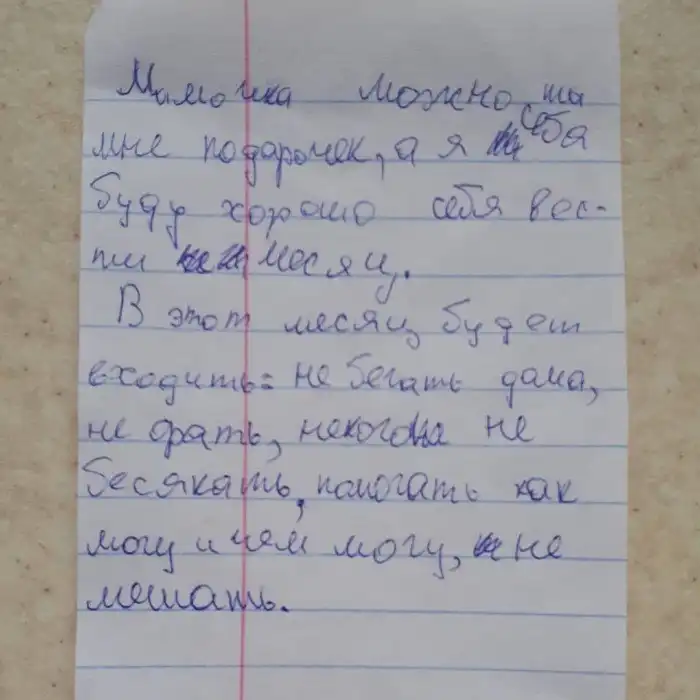 Мамочка можно ты
мне подарочек, а я себя
буду хорошо себя вес-
ти месяц.
В этот месяц будет
входить: не бегать дама,
не орать, некогда не
бесякать, помогать как
могу и чем могу, не
мешать.